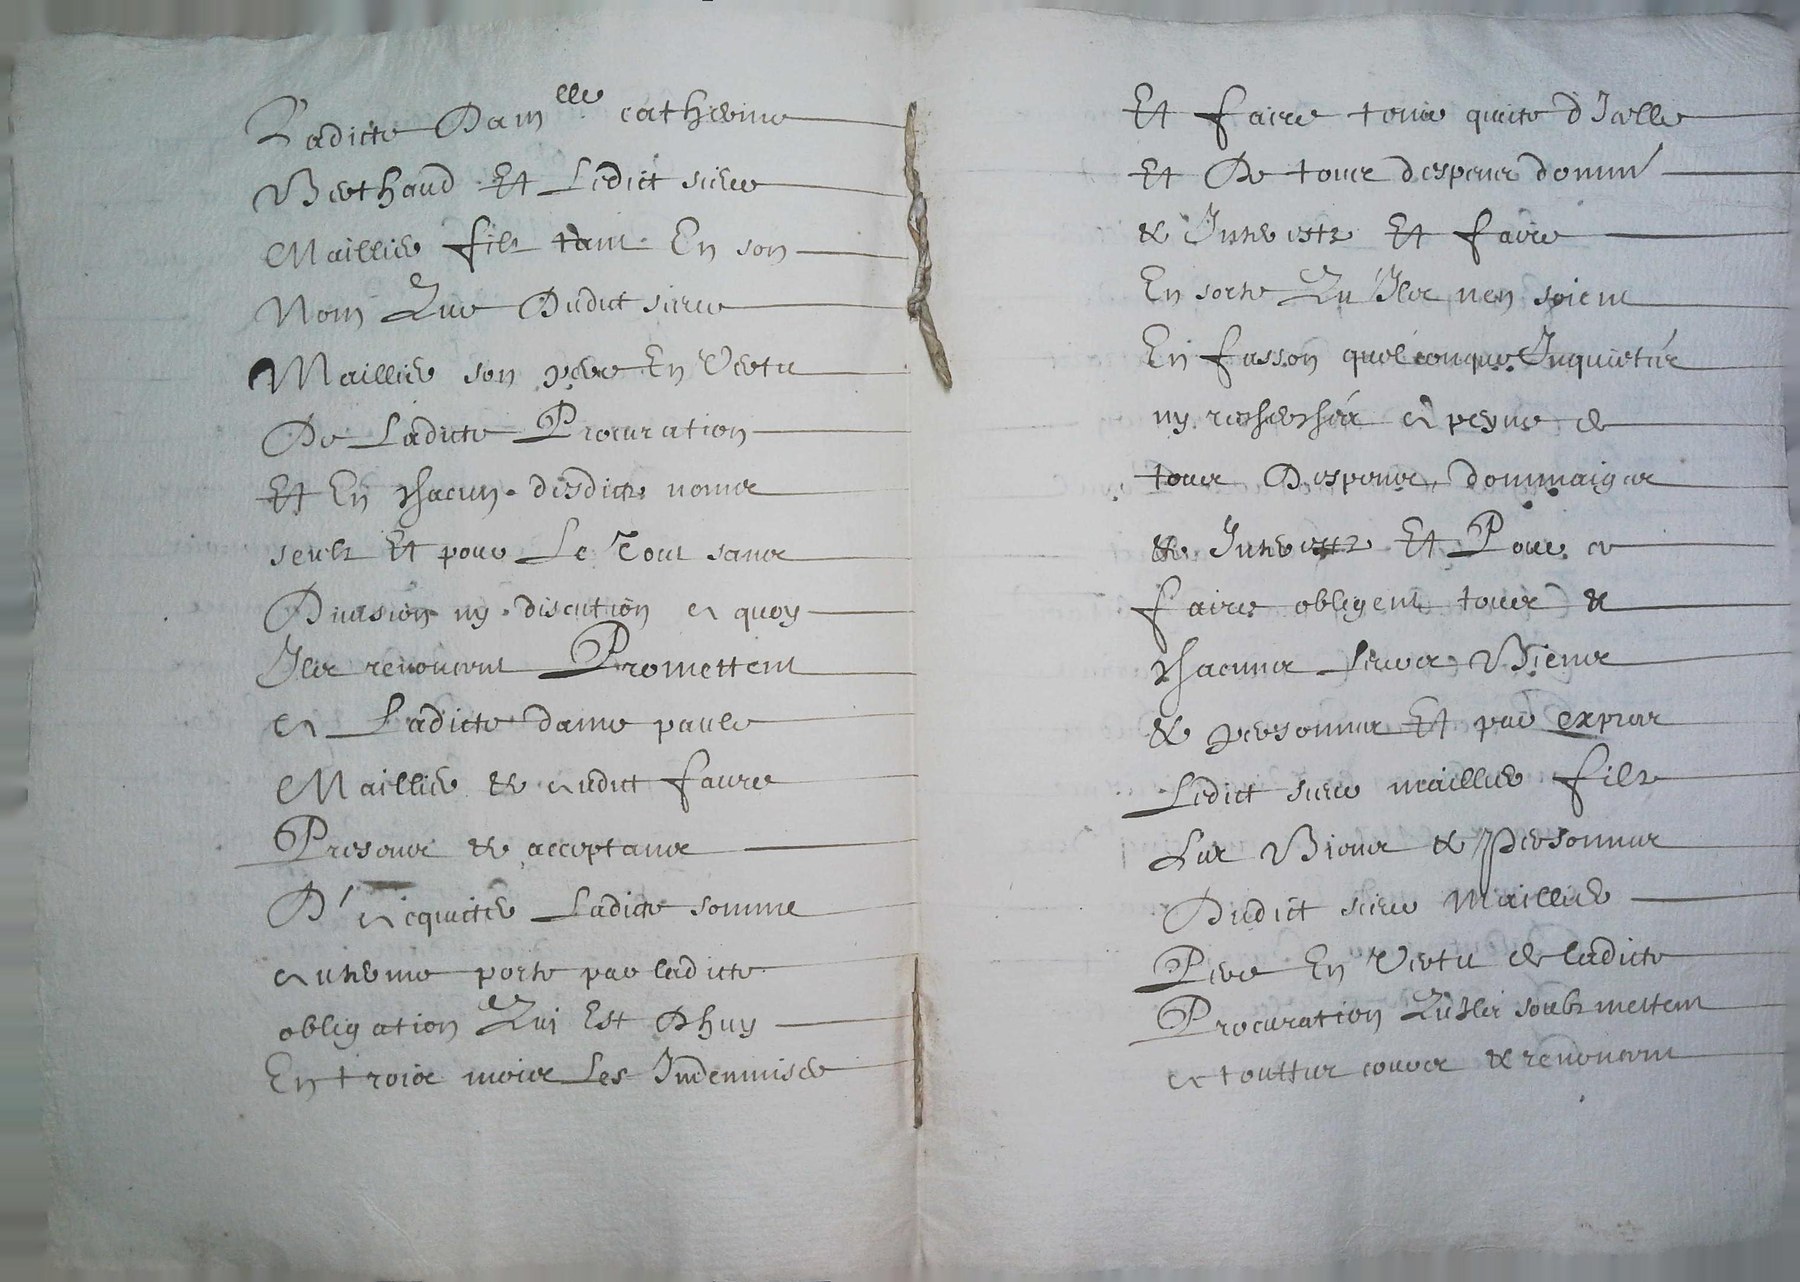 Ladicte Dam.elle catherine
Berthaud Et Ledict sieur
Maillier fils tant En son
Nom Que Dudict sieur
Maillier son pere En Vertu
De Ladicte Procuration
Et En chacun desdicts noms
seulz Et pour Le Tout sans
Division ny discution a quoy
Ilz renoncent Promettent
a Ladicte dame paule
Maillier & audict faure
Presens & acceptans
D'acquiter Ladicte somme
autreme porte par ladicte
obligation Qui Est Dhuy
En trois mois Les Indemniser
Et faire tenir quite d'Icelle
Et De tous despens domm'
& Interestz Et faire
En sorte Qu'Ilz nen soient
En fasson quelconque Inquietés
ny recherchés a peyne de
tous Despens, dommaiges
& Interestz Et Pour ce
faire obligent tous &
chacuns leurs Biens
& personnes Et par exprez
Ledict sieur maillier filz
Les Biens & Personnes
Dudict sieur Maillier
Pere En Vertu de ladicte
Procuration Qu'Ilz soubzmettent
a touttes cours & renoncent